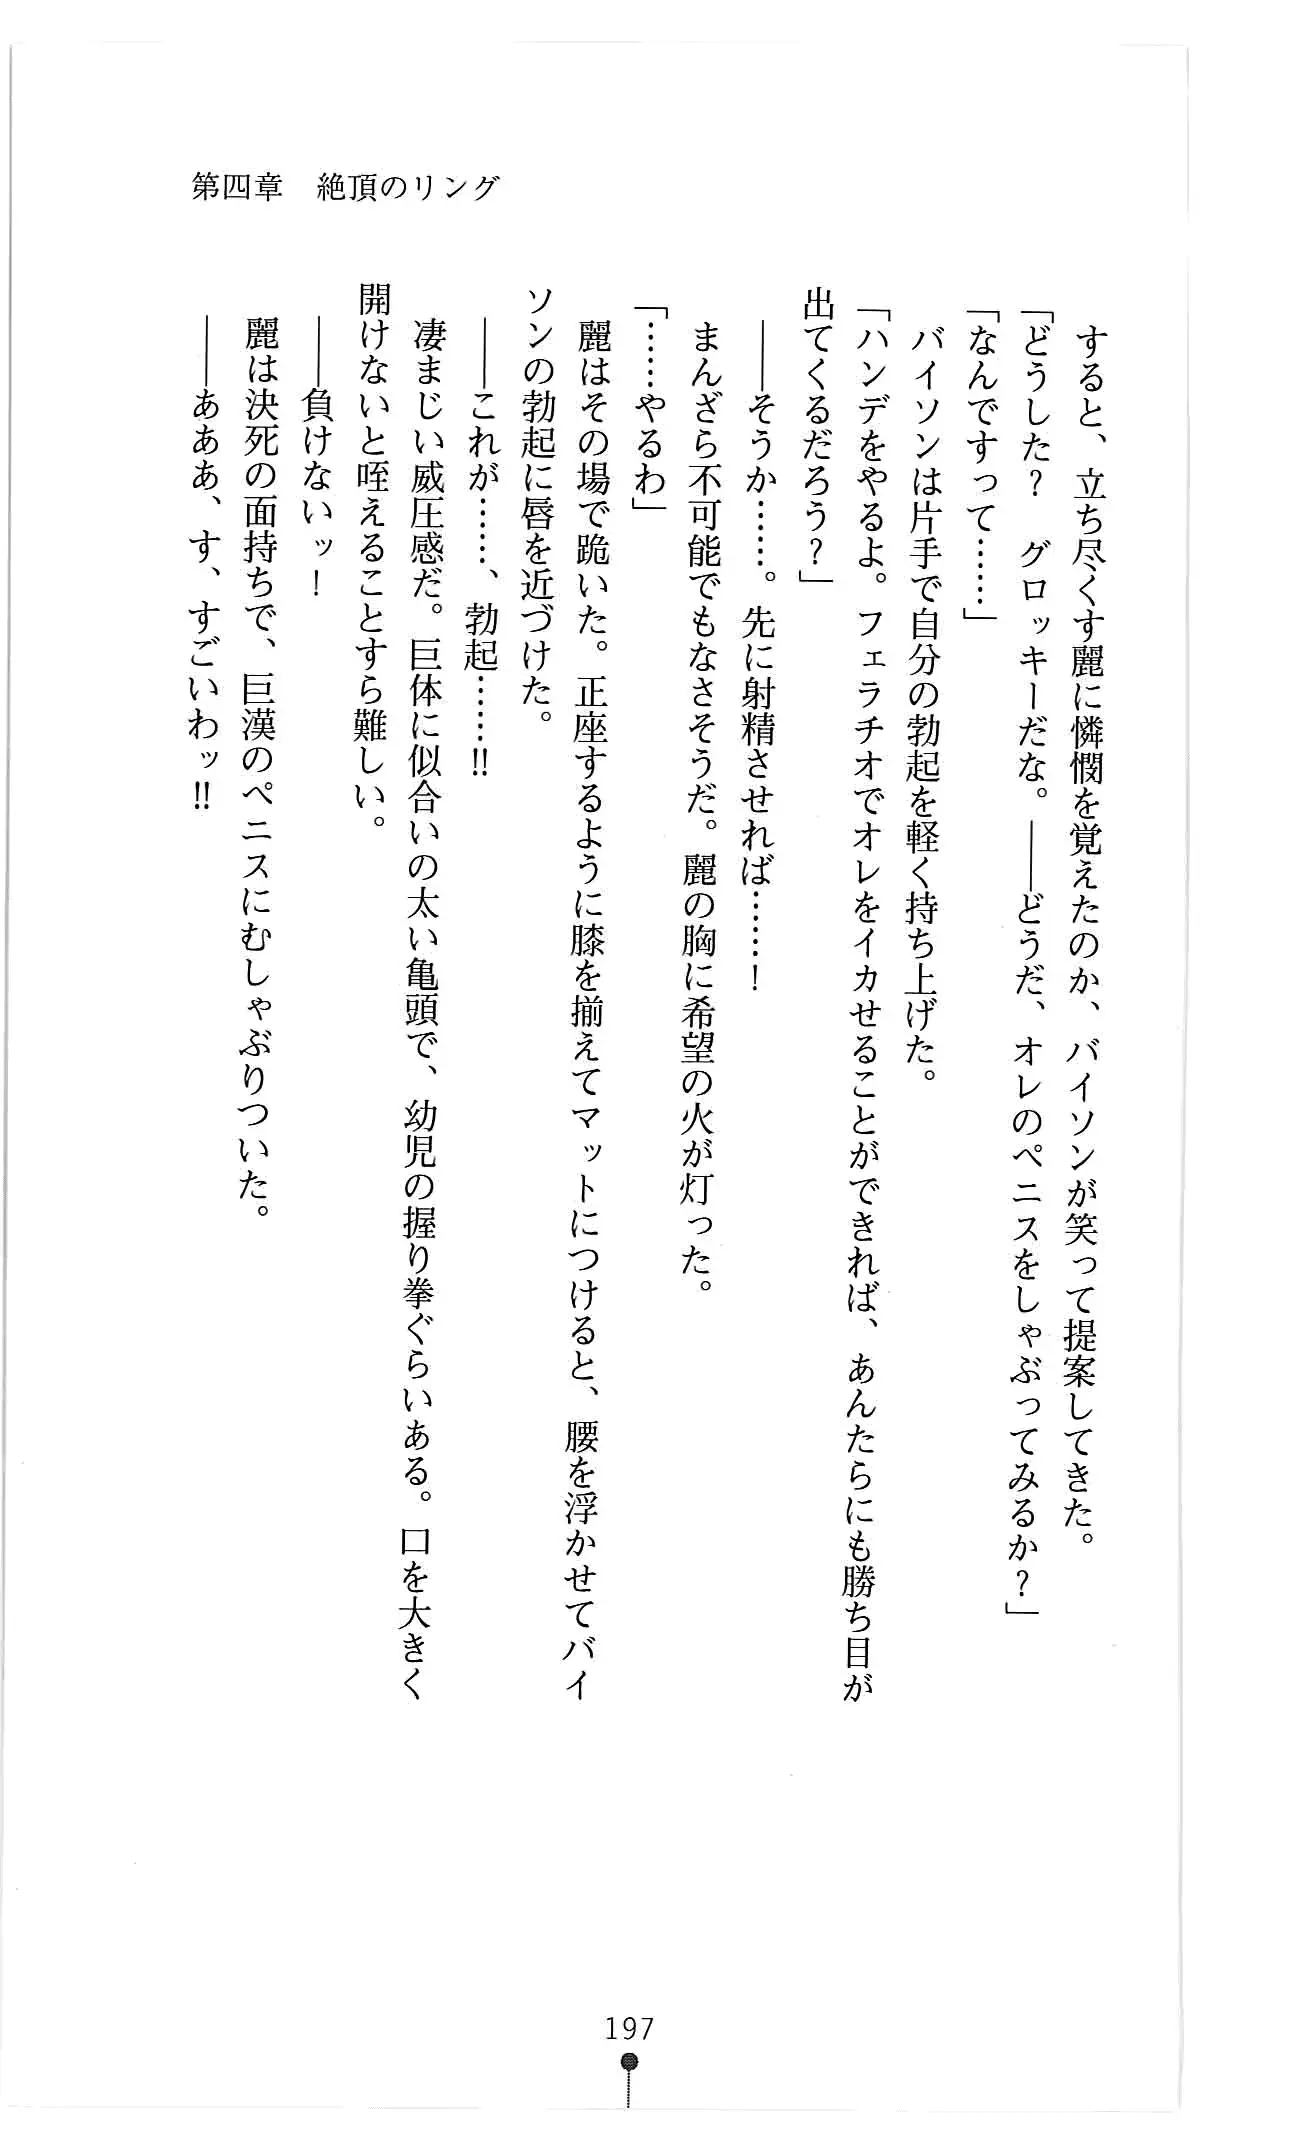 第四章　絶頂のリング
すると、立ち尽くす麗に憐憫を覚えたのか、バイソンが笑って提案してきた。
「どうした？　グロッキーだな。――どうだ、オレのペニスをしゃぶってみるか？」
「なんですって……」
バイソンは片手で自分の勃起を軽く持ち上げた。
「ハンデをやるよ。フェラチオでオレをイカせることができれば、あんたらにも勝ち目が
出てくるだろう？」
――そうか……。先に射精させれば……！
まんざら不可能でもなさそうだ。麗の胸に希望の火が灯った。
「……やるわ」
麗はその場で跪いた。正座するように膝を揃えてマットにつけると、腰を浮かせてバイ
ソンの勃起に唇を近づけた。
――これが……、勃起……!!
凄まじい威圧感だ。巨体に似合いの太い亀頭で、幼児の握り拳ぐらいある。口を大きく
開けないと咥えることすら難しい。
――負けないッ！
麗は決死の面持ちで、巨漢のペニスにむしゃぶりついた。
――あああ、す、すごいわッ!!
197